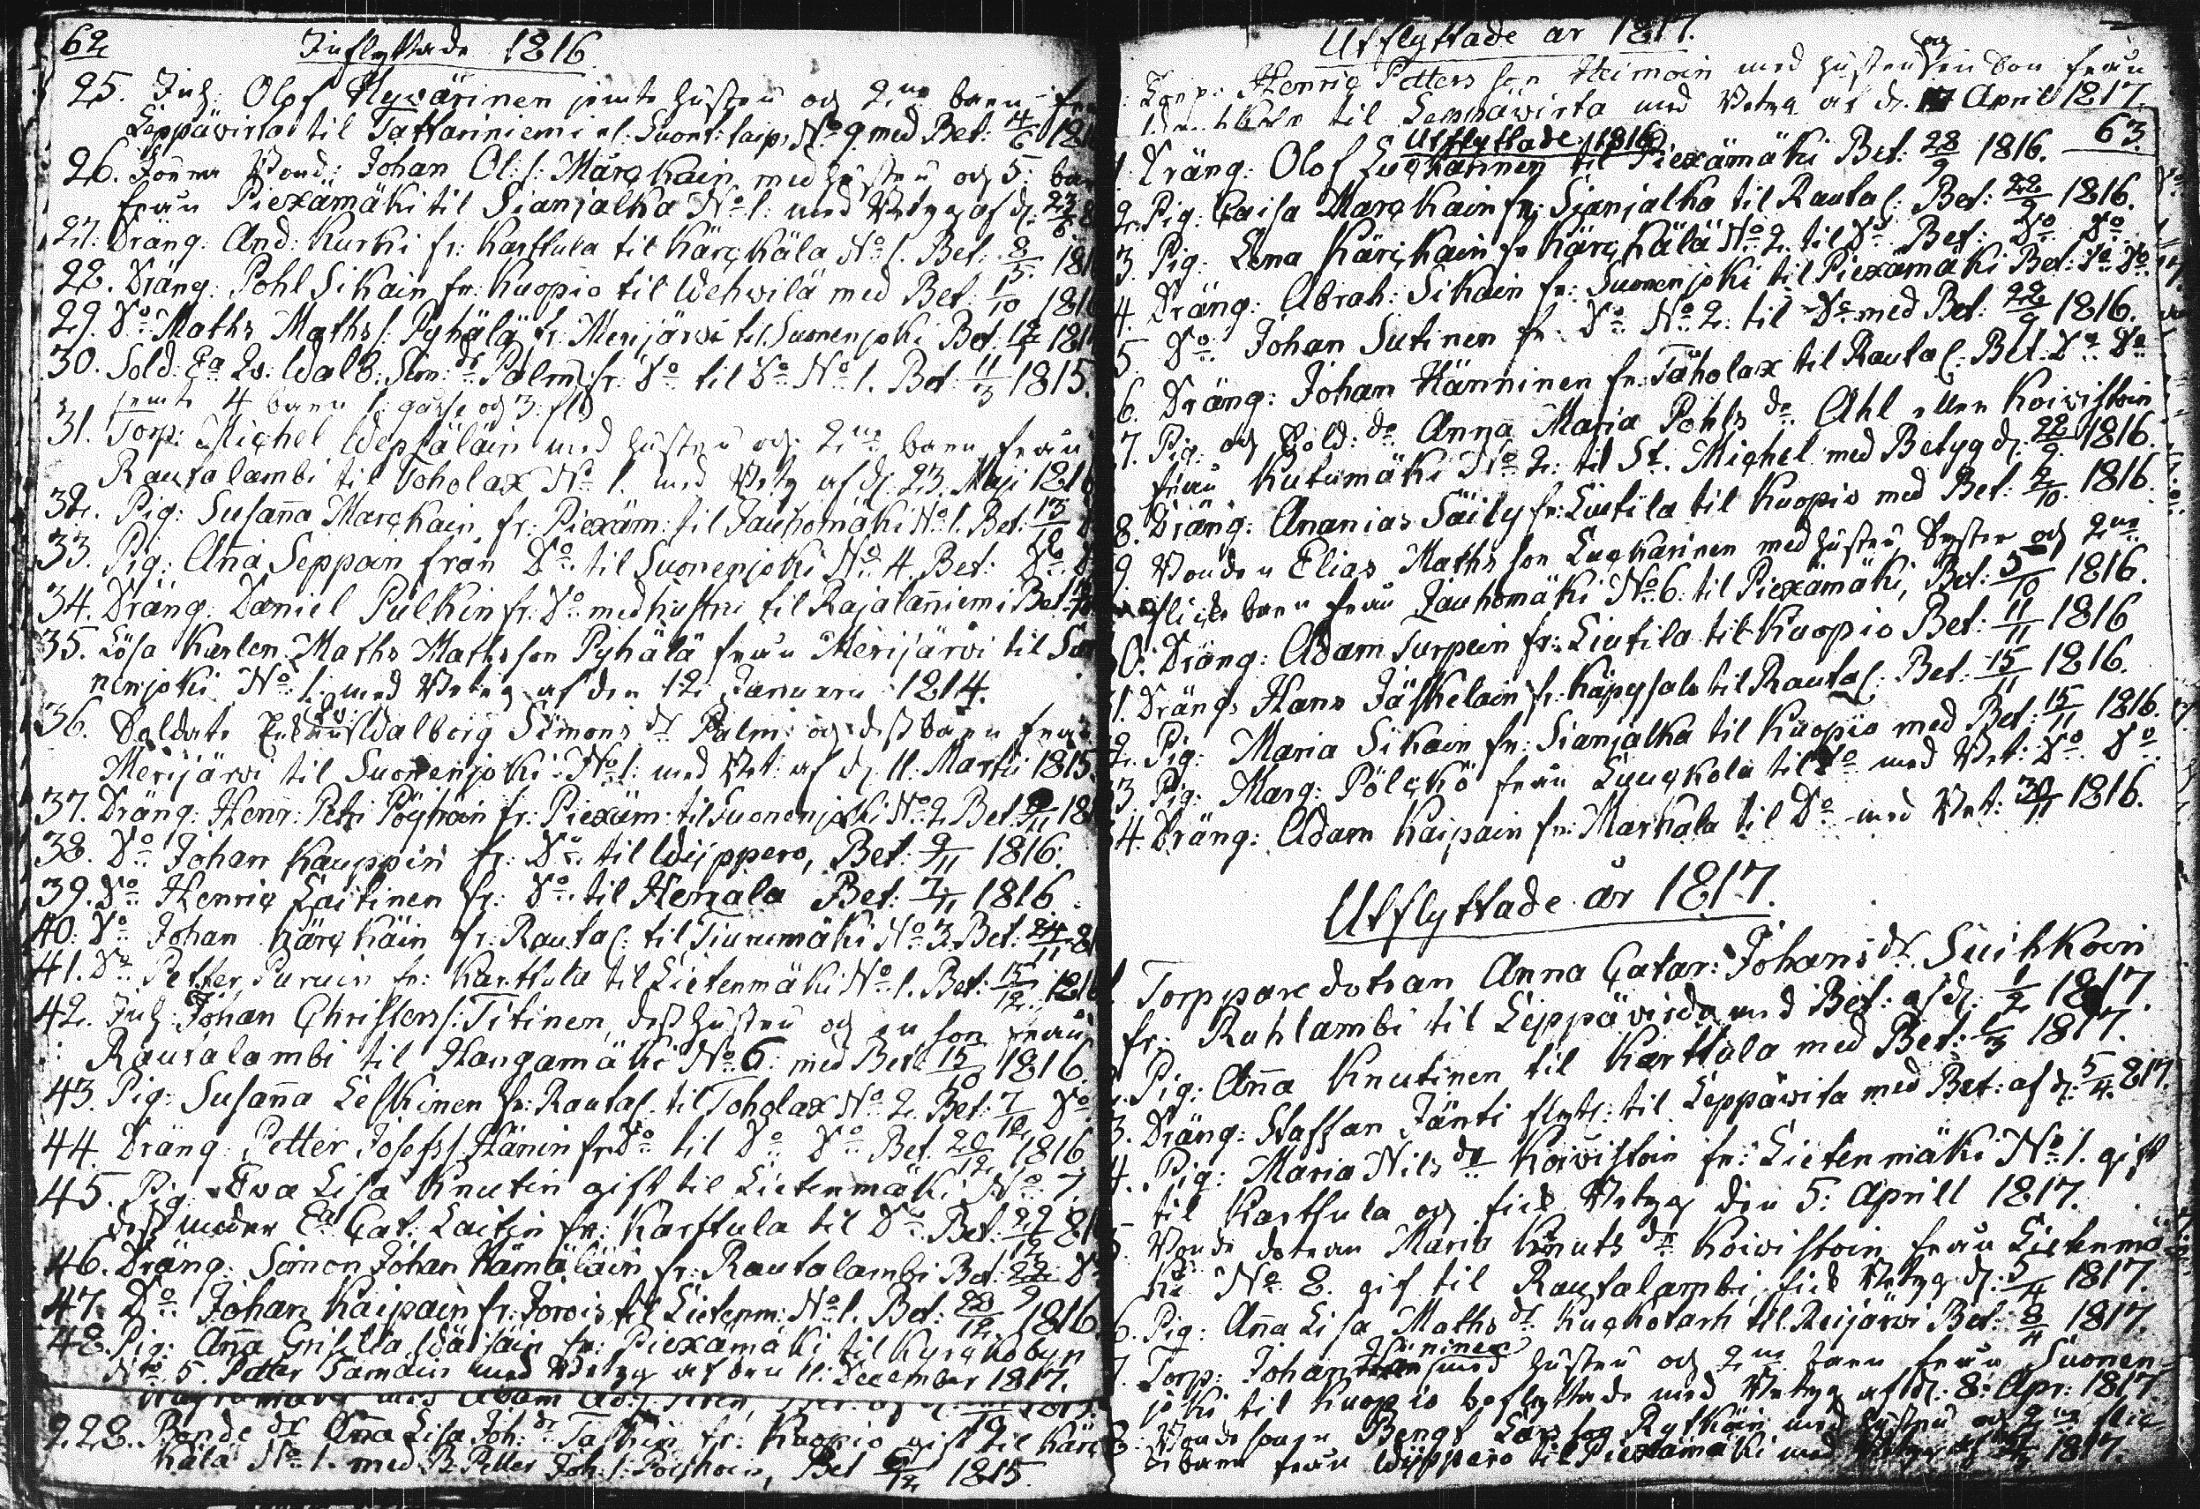 62
Inflyttade 1816.
25. Inh: Olof Hyvärinen jemte hustru och 2ne barn
Leppävirta til Tattariniemi el. Suont: No 9. med Bet: 4/6
26. Bond: Johan Ol: s: Marckain med hustru och 5: barn
från Piexämäki til Sianjalka No 1. med Betyg af d: 23/6
27. Dräng: And: Kurki fr: Karttula til Kärckälä No 1. Bet: 8/
28. Dräng: Pohl Sikain fr: Kuopio til Wehwilä med Bet: /10
29. Do Maths Maths s: Pyhälä fr: Merijärvi til Suonenjoki Bet: 12/1
30. Sold: Ea Walb: Sim: dr Palm fr: Do til Do No 1. Bet 11/3 1815.
jemte 4 barn 1. gosse och 3: fl:
31. Torp: Michel Wepsäläin med hustru och 2ne barn från
Rautalambi til Toholax No 1. med Betyg af d: 23. Maji
32. Pig: Susaña Marckain fr: Piexäm: til Jauhomäki No 1. Bet: 13/10
33. Pig: Aña Seppain från Do til Suonenjoki No 4. Bet: Do
34. Dräng: Daniel Pulkin fr: Do med hustru til Rajalañiemi Bet:
35. Lösa Karlen Maths Mathsson Pyhälä från Merijärvi til
nenjoki No 1. med Betyg af den 12. Januarii 1814.
36. Soldats Enkan Walborg Simons dr Palm och dess barn från
Merijärvi til Suonenjoki No 1: med Bet: af d: 11. Martii 1815.
37. Dräng: Henr: Petri Pöyhöin fr: Piexäm: til Suonenjoki No 2. Bet:
38. Do Johan Kauppin fr: Do til Wijppero, Bet: 9/11 1816.
39. Do Henric Laitinen fr: Do til Herrala Bet: 7/11 1816.
40. Do Johan Kärckäin fr: Rautal: til Tiurumäki No 3. Bet: 24/11
41. Do Petter Puruin fr: Karttula til Lietenmäki No 1. Bet: 15/12
42. Inh: Johan Christers s: Titinen, dess hustru och en son från
Rautalambi til Hangamäki No 6: med Bet: 1816.
43. Pig: Susaña Leskinen fr: Rautal: til Toholax No 2. Bet: 7/12 Do
44. Dräng: Petter Josefs s: Hänin fr: Do til Do Do Bet. 20/12 1816
45. Pig: Eva Lisa Knutin gift til Lietenmäki No 7.
dess moder Ea Cat: Laitin fr: Karttula til Do Bet: 22/12
46. Dräng: Simon Johan Hämäläin fr: Rautalambi Bet: 22/9
47. Do Johan Kaipain fr: Jorois til Lietenm: No 1. Bet: 28/12 1816.
48. Pig: Aña Grisilla Wäisäin fr: Piexämäki til Kyrckobyn
No 5. Petter Tamain med Betyg af den 11. December 1817.
228. Bonde dr Aña Lisa Joh: dr Taskin fr: Kuopio gift til Kärc
kälä No 1. med B. Petter Joh: s: Pöyhöin, Bet /12 1815.
Utflyttade år 1817.
Torp: Henric Petters son Heimoin med hustru och en Son från
til Leppävirta med Betyg af d: April 1817.
63.
Utflyttade 1816.
1. Dräng: Olof Luckarinen til Piexämäki Bet: 28/9 1816.
2. Pig: Caisa Marckain fr: Sianjalka til Rautal: Bet: 22/9 1816.
3. Pig: Lena Kärckäin fr Kärckälä No 2. til Do Bet: Do Do
4. Dräng: Abrah: Sikain fr: Suonenjoki til Piexämäki Bet: Do Do
5. Do Johan Sutinen fr: Do No 2: til Do med Bet: 22/9 1816.
6. Dräng: Johan Hänninen fr: Toholax til Rautal: Bet. Do Do
7. Pig: och Sold: dr Anna Maria Pohls dr Ahl eller Koivistoin
från Kutumäki No 2: til St. Michel med Betyg d: 22/9 1816.
8. Dräng: Ananias Säily fr: Liutila til Kuopio med Bet: 2/10. 1816.
9. Bonden Elias Maths son Luckarinen med hustru Syster och 2ne
flicke barn från Jauhomäki No 6. til Piexämäki, Bet: 5/10 1816.
10. Dräng: Adam Turpein fr: Liutila til Kuopio Bet: 11/11 1816
11. Dräng: Hans Jäskelain fr: Käpysalo til Rautal: Bet: 15/11 1816.
12. Pig: Maria Sikain fr: Sianjalka til Kuopio med Bet: 15/11 1816.
13. Pig: Marg: Pölckö från Lyyckola til Do med Bet: Do Do
14. Dräng: Adam Kaipain fr: Markala til Do med Bet: 30/11 1816.
Utflyttade år 1817.
1. Torppare dotran Anna Catar: Johans dr Suihkoin
fr: Ruhlambi til Leppävirda med Bet: af d: 1/2 1817.
2. Pig: Aña Knutinen til Karttula med Bet: 1/3 1817.
3. Dräng: Staffan Jänti flytt: til Leppävirta med Bet: af d: 5/4. 817.
4. Pig: Maria Nils dr Koivistoin fr: Lietenmäki No 1. gift
til Karttula och fick Betyg den 5: Aprill 1817.
5. Bonde dotran Maria Knuts dr Koivistoin från Lietenmä
ki No 8. gift til Rautalambi, fick Betyg d: 5/4 1817.
6. Pig: Aña Lisa Maths dr Kuckotarh til Reijärvi Bet: 8/11 1817.
7. Torp: Johan med hustru och 2ne barn från Suonen-
joki til Kuopio boflyttade med Betyg af d: 8: Apr: 1817
8. Bondesonen Bengt Lars son Rytkäin med hustru och 2ne
barn från Wijppero til Piexämäki med 1817.